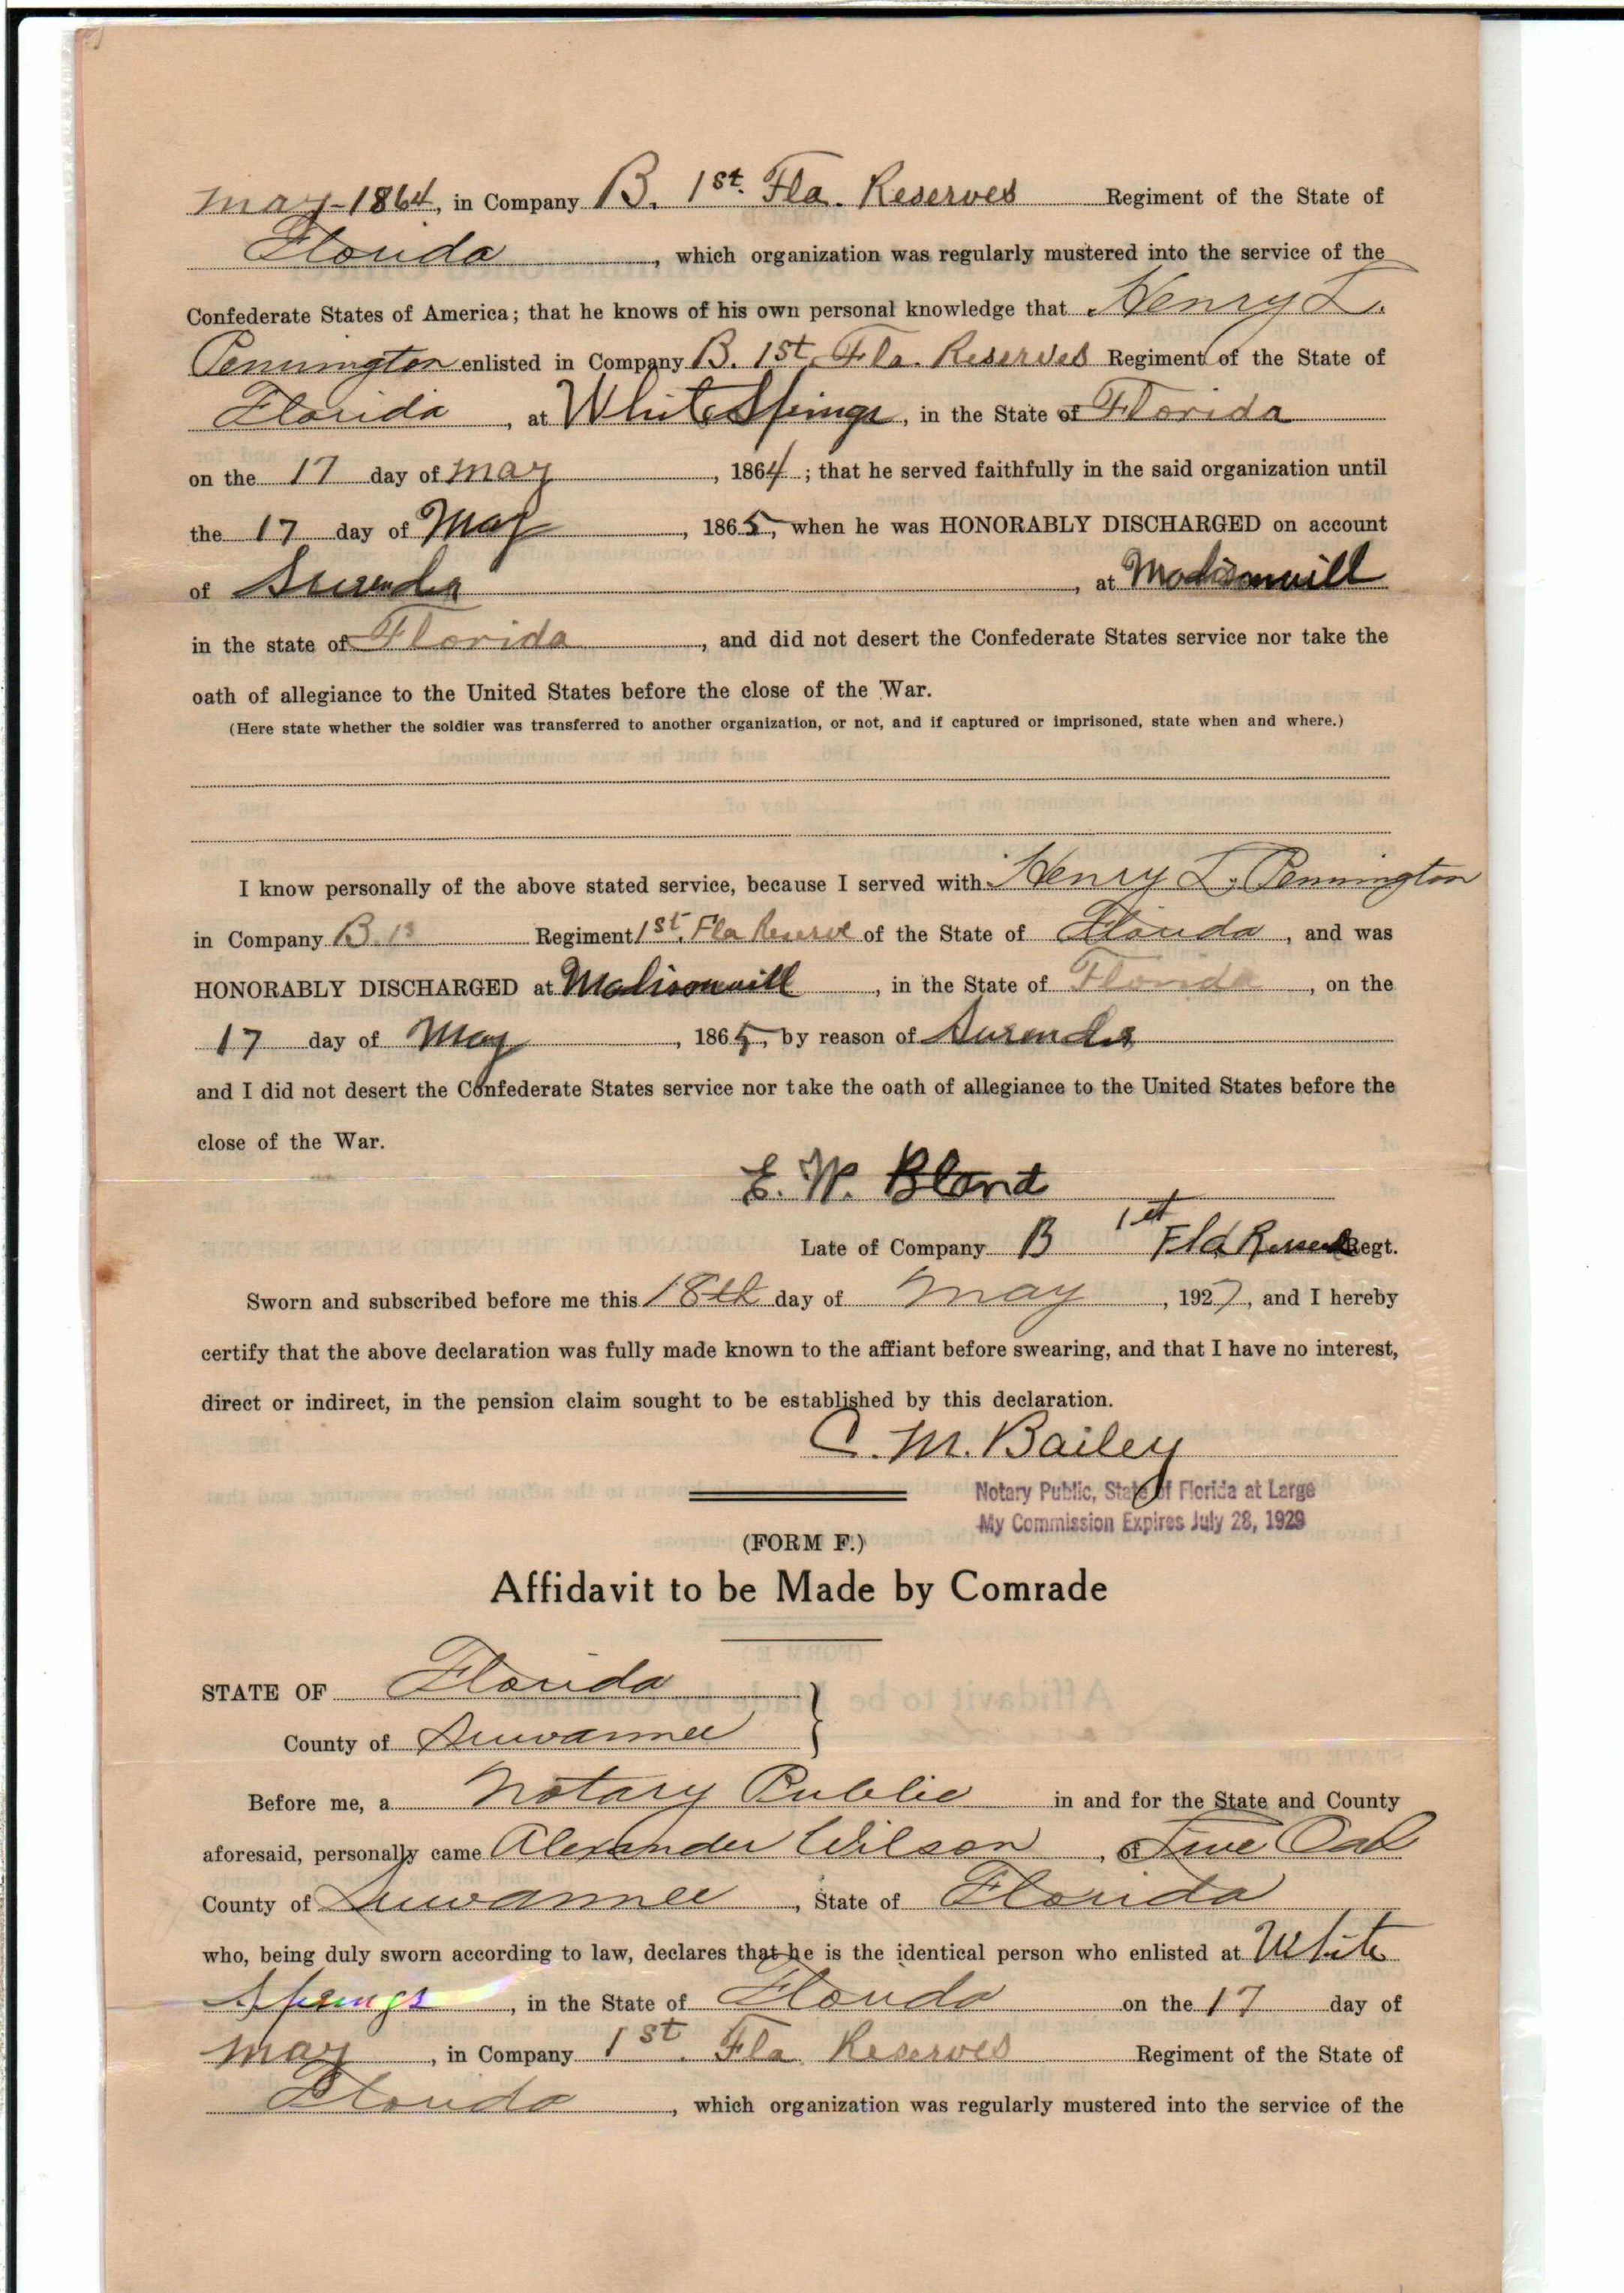 May-1864, in Company B. 1st. Fla. Reserves Regiment of the State of
Florida, which organization was regularly mustered into the service of the
Confederate States of America; that he knows of his own personal knowledge that Henry L.
Pennington enlisted in Company B. 1st. Fla. Reserves Regiment of the State of
Florida, at White Springs, in the State of Florida
on the 17 day of May, 1864; that he served faithfully in the said organization until
the 17 day of May, 1865, when he was HONORABLY DISCHARGED on account
of Surender, at Madisonvill
in the state of Florida, and did not desert the Confederate States service nor take the
oath of allegiance to the United States before the close of the War.
(Here state whether the soldier was transferred to another organization, or not, and if captured or imprisoned, state when and where.)
I know personally of the above stated service, because I served with Henry L. Pennington
in Company B. Regiment 1st. Fla Reserve of the State of Florida, and was
HONORABLY DISCHARGED at Madisonvill, in the State of Florida, on the
17 day of May, 1865, by reason of Surender
and I did not desert the Confederate States service nor take the oath of allegiance to the United States before the
close of the War.
E. W. Bland
Late of Company B 1st Fla Regt.
Sworn and subscribed before me this 18th day of May, 1927, and I hereby
certify that the above declaration was fully made known to the affiant before swearing, and that I have no interest,
direct or indirect, in the pension claim sought to be established by this declaration.
C. M. Bailey
Notary Public, State of Florida at Large
My Commission Expires July 28, 1929
(FORM F.)
Affidavit to be Made by Comrade
STATE OF Florida
County of Suwannee
Before me, a Notary Public in and for the State and County
aforesaid, personally came Alexander Wilson, of Live Oak
County of Suwannee, State of Florida
who, being duly sworn according to law, declares that he is the identical person who enlisted at White
Springs, in the State of Florida on the 17 day of
May, in Company 1st. Fla. Reserves Regiment of the State of
Florida, which organization was regularly mustered into the service of the